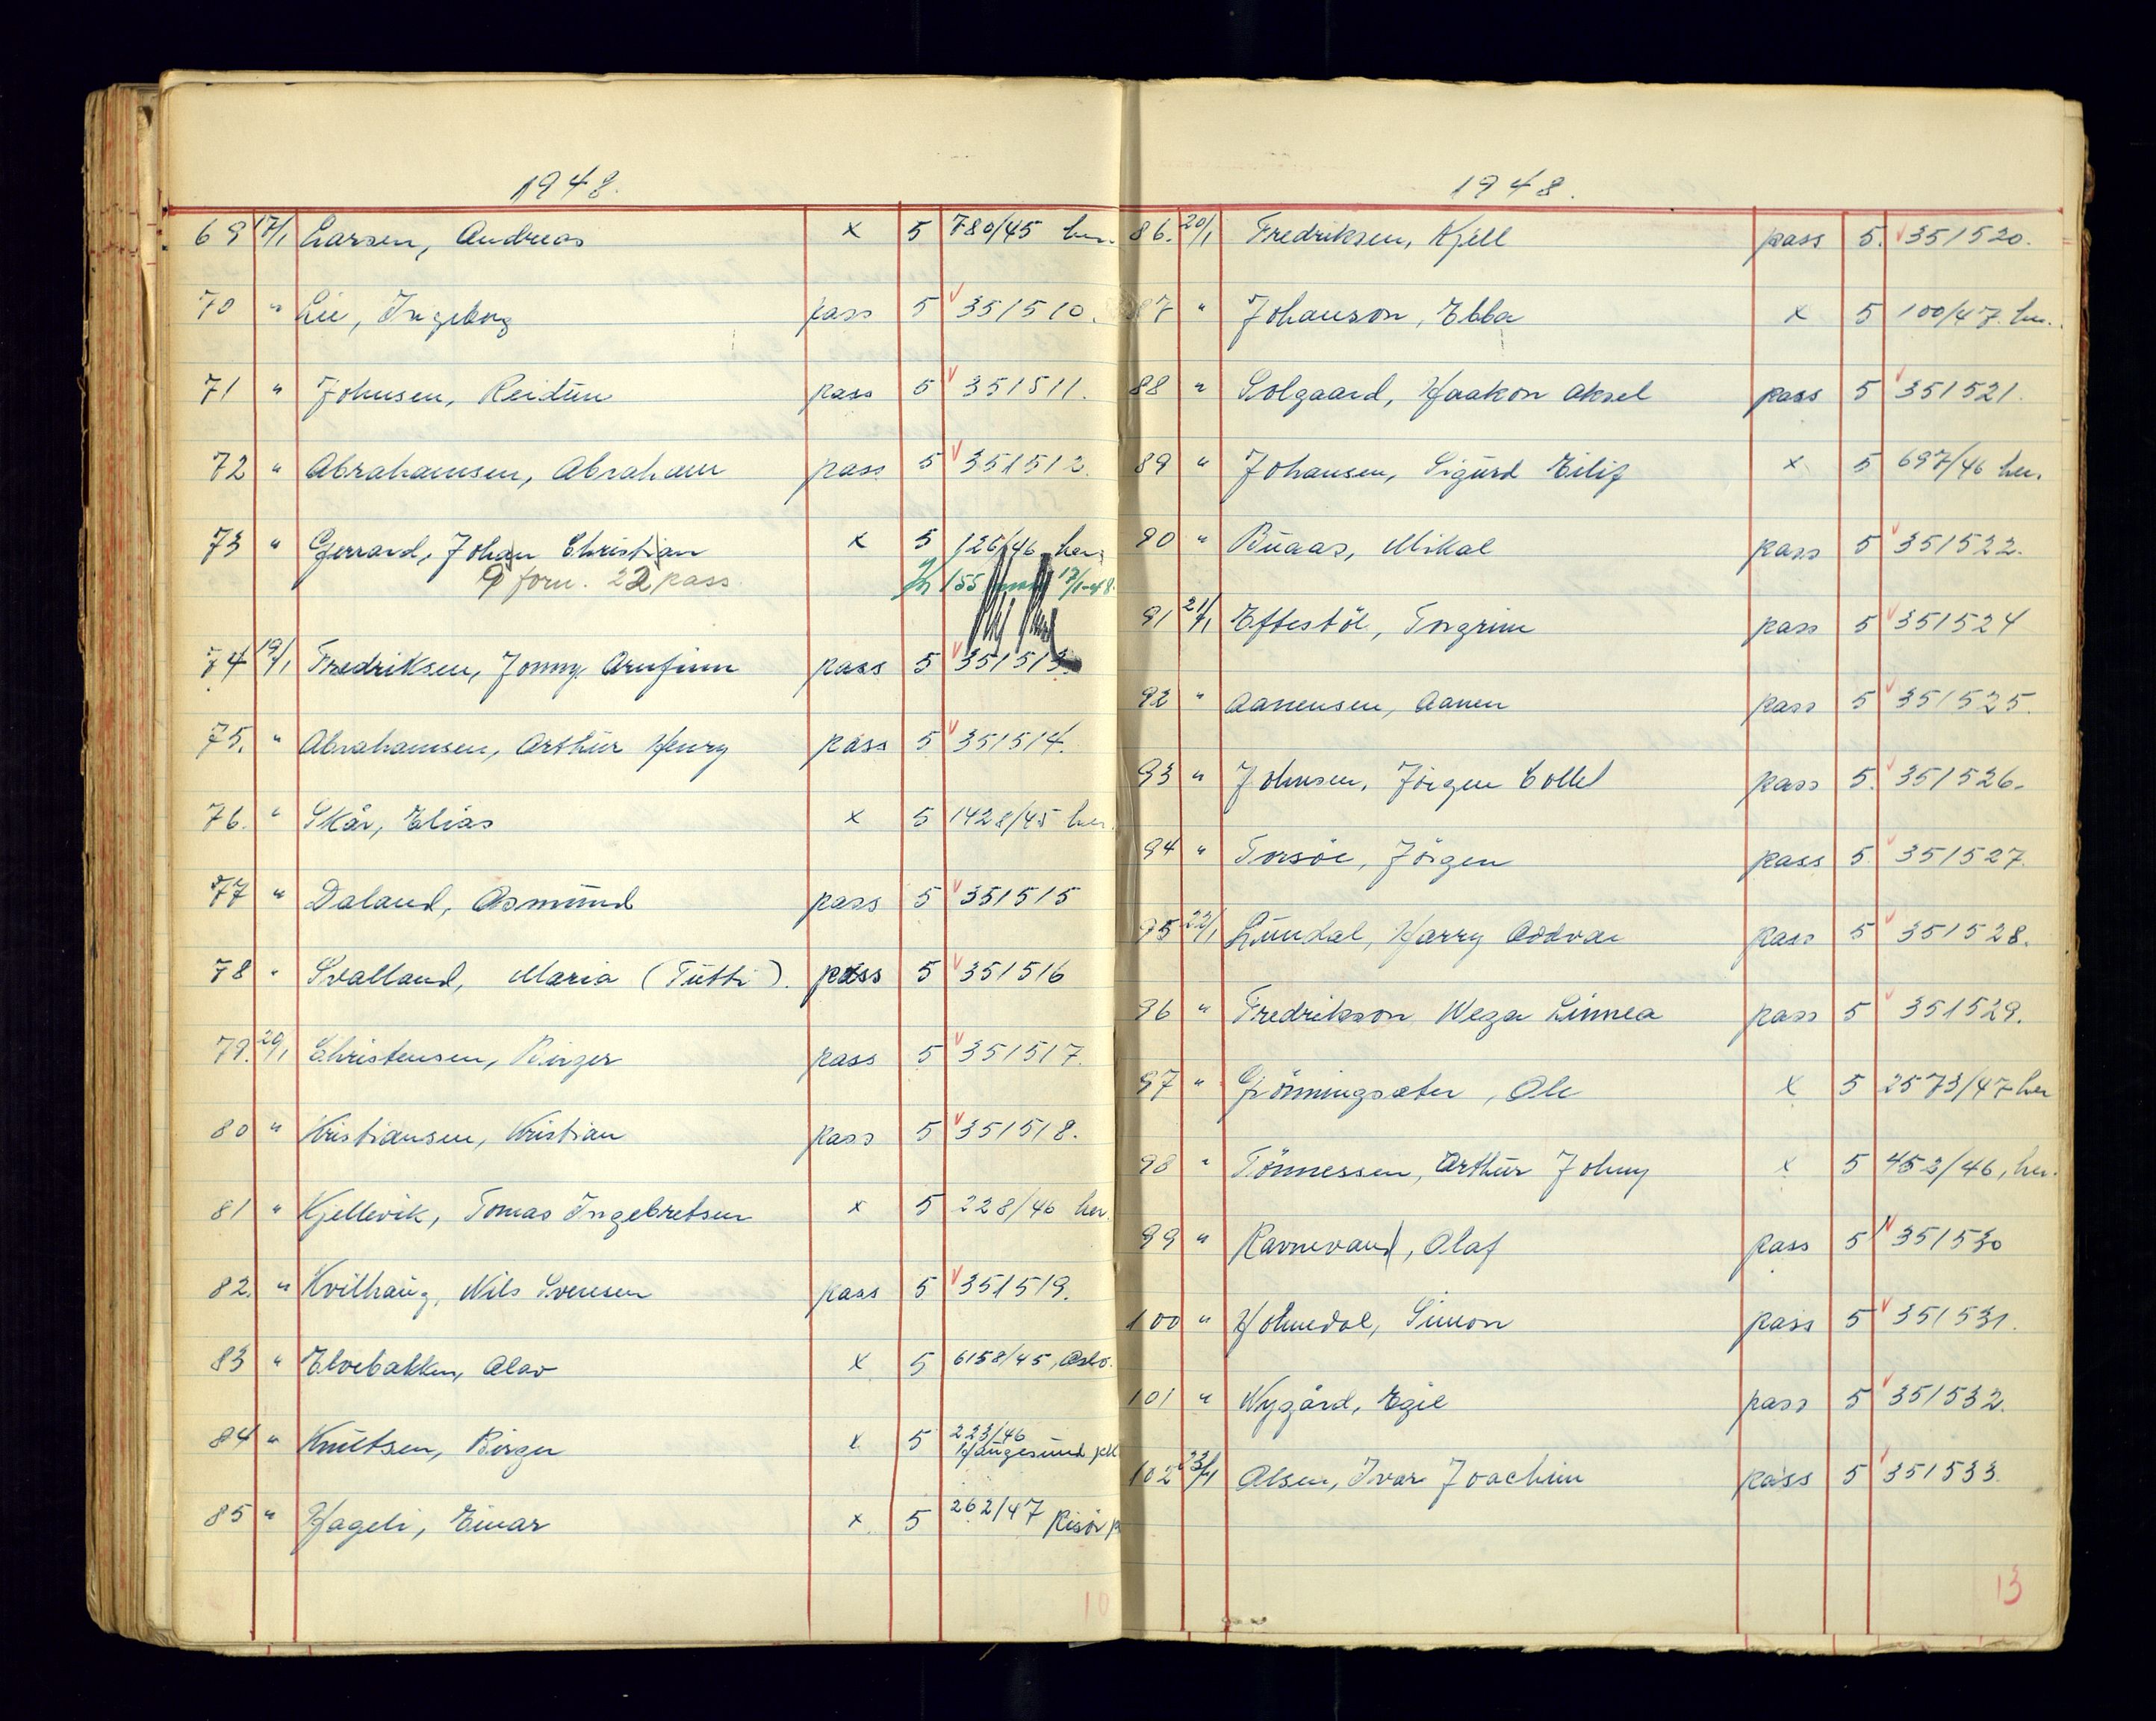 1948.
69 17/1 Larsen, Andreas x 5 780/45 her.
70 " Lie, Ingeborg pass 5 v 351510.
71 " Johnsen, Reidun pass 5 v 351511.
72 " Abrahamsen, Abraham pass 5 v 351512.
73 " Gjerrard, Johan Christian x 5 126/46 her,
forn. 22 pass. 155 17/1-48.
74 19/1 Fredriksen, Jonny Arnfinn pass 5 v 351513
75. " Abrahamsen, Arthur Henry pass 5 v 351514.
76. " Skår, Elias x 5 1428/45 her.
77 " Daland, Asmund pass 5 v 351515
78 " Svalland, Maria (Tutti). pass 5 v 351516
79. 20/1 Christensen, Birger pass 5 v 351517.
80 " Kristiansen, Kristian pass 5 v 351518.
81 " Kjellevik, Tomas Ingebretsen x 5 228/46 her.
82. " Kvilhaug, Nils Svensen pass 5 v 351519.
83 " Elvebakken, Olav x 5 6158/45, Oslo.
84 " Knutsen, Birger x 5 223/46
Haugesund pk
85 " Hageli, Einar x 5 262/47 Risör p
10
1948.
86. 20/1 Fredriksen, Kjell pass 5. v 351520.
87 " Johanson, Ebba x 5 100/47. her.
88 " Solgaard, Haakon Aksel pass 5 v 351521.
89 " Johansen, Sigurd Eilif x 5 697/46 her.
90 " Buaas, Mikal pass 5 v 351522.
91 21/1 Eftestöl, Torgrim pass 5 v 351524
92 " Aanensen, Aanen pass 5 v 351525.
93 " Johnsen, Jörgen Collet pass 5. v 351526.
94 " Torsöe, Jörgen pass 5. v 351527.
95 22/1 Lundal, Harry Oddvar pass 5 v 351528.
96 " Fredrikson Wega Linnea pass 5 v 351529.
97 " Grönningsæter, Ole x 5 2573/47 her
98 " Tönnessen, Arthur Johny x 5 453/46, her.
99 " Ravnevand, Olaf pass 5 v 351530
100 " Holmedal, Simon pass 5 v 351531.
101 " Nygård, Egil pass 5 v 351532.
102 23/1 Olsen, Ivar Joachim pass 5 v 351533.
13